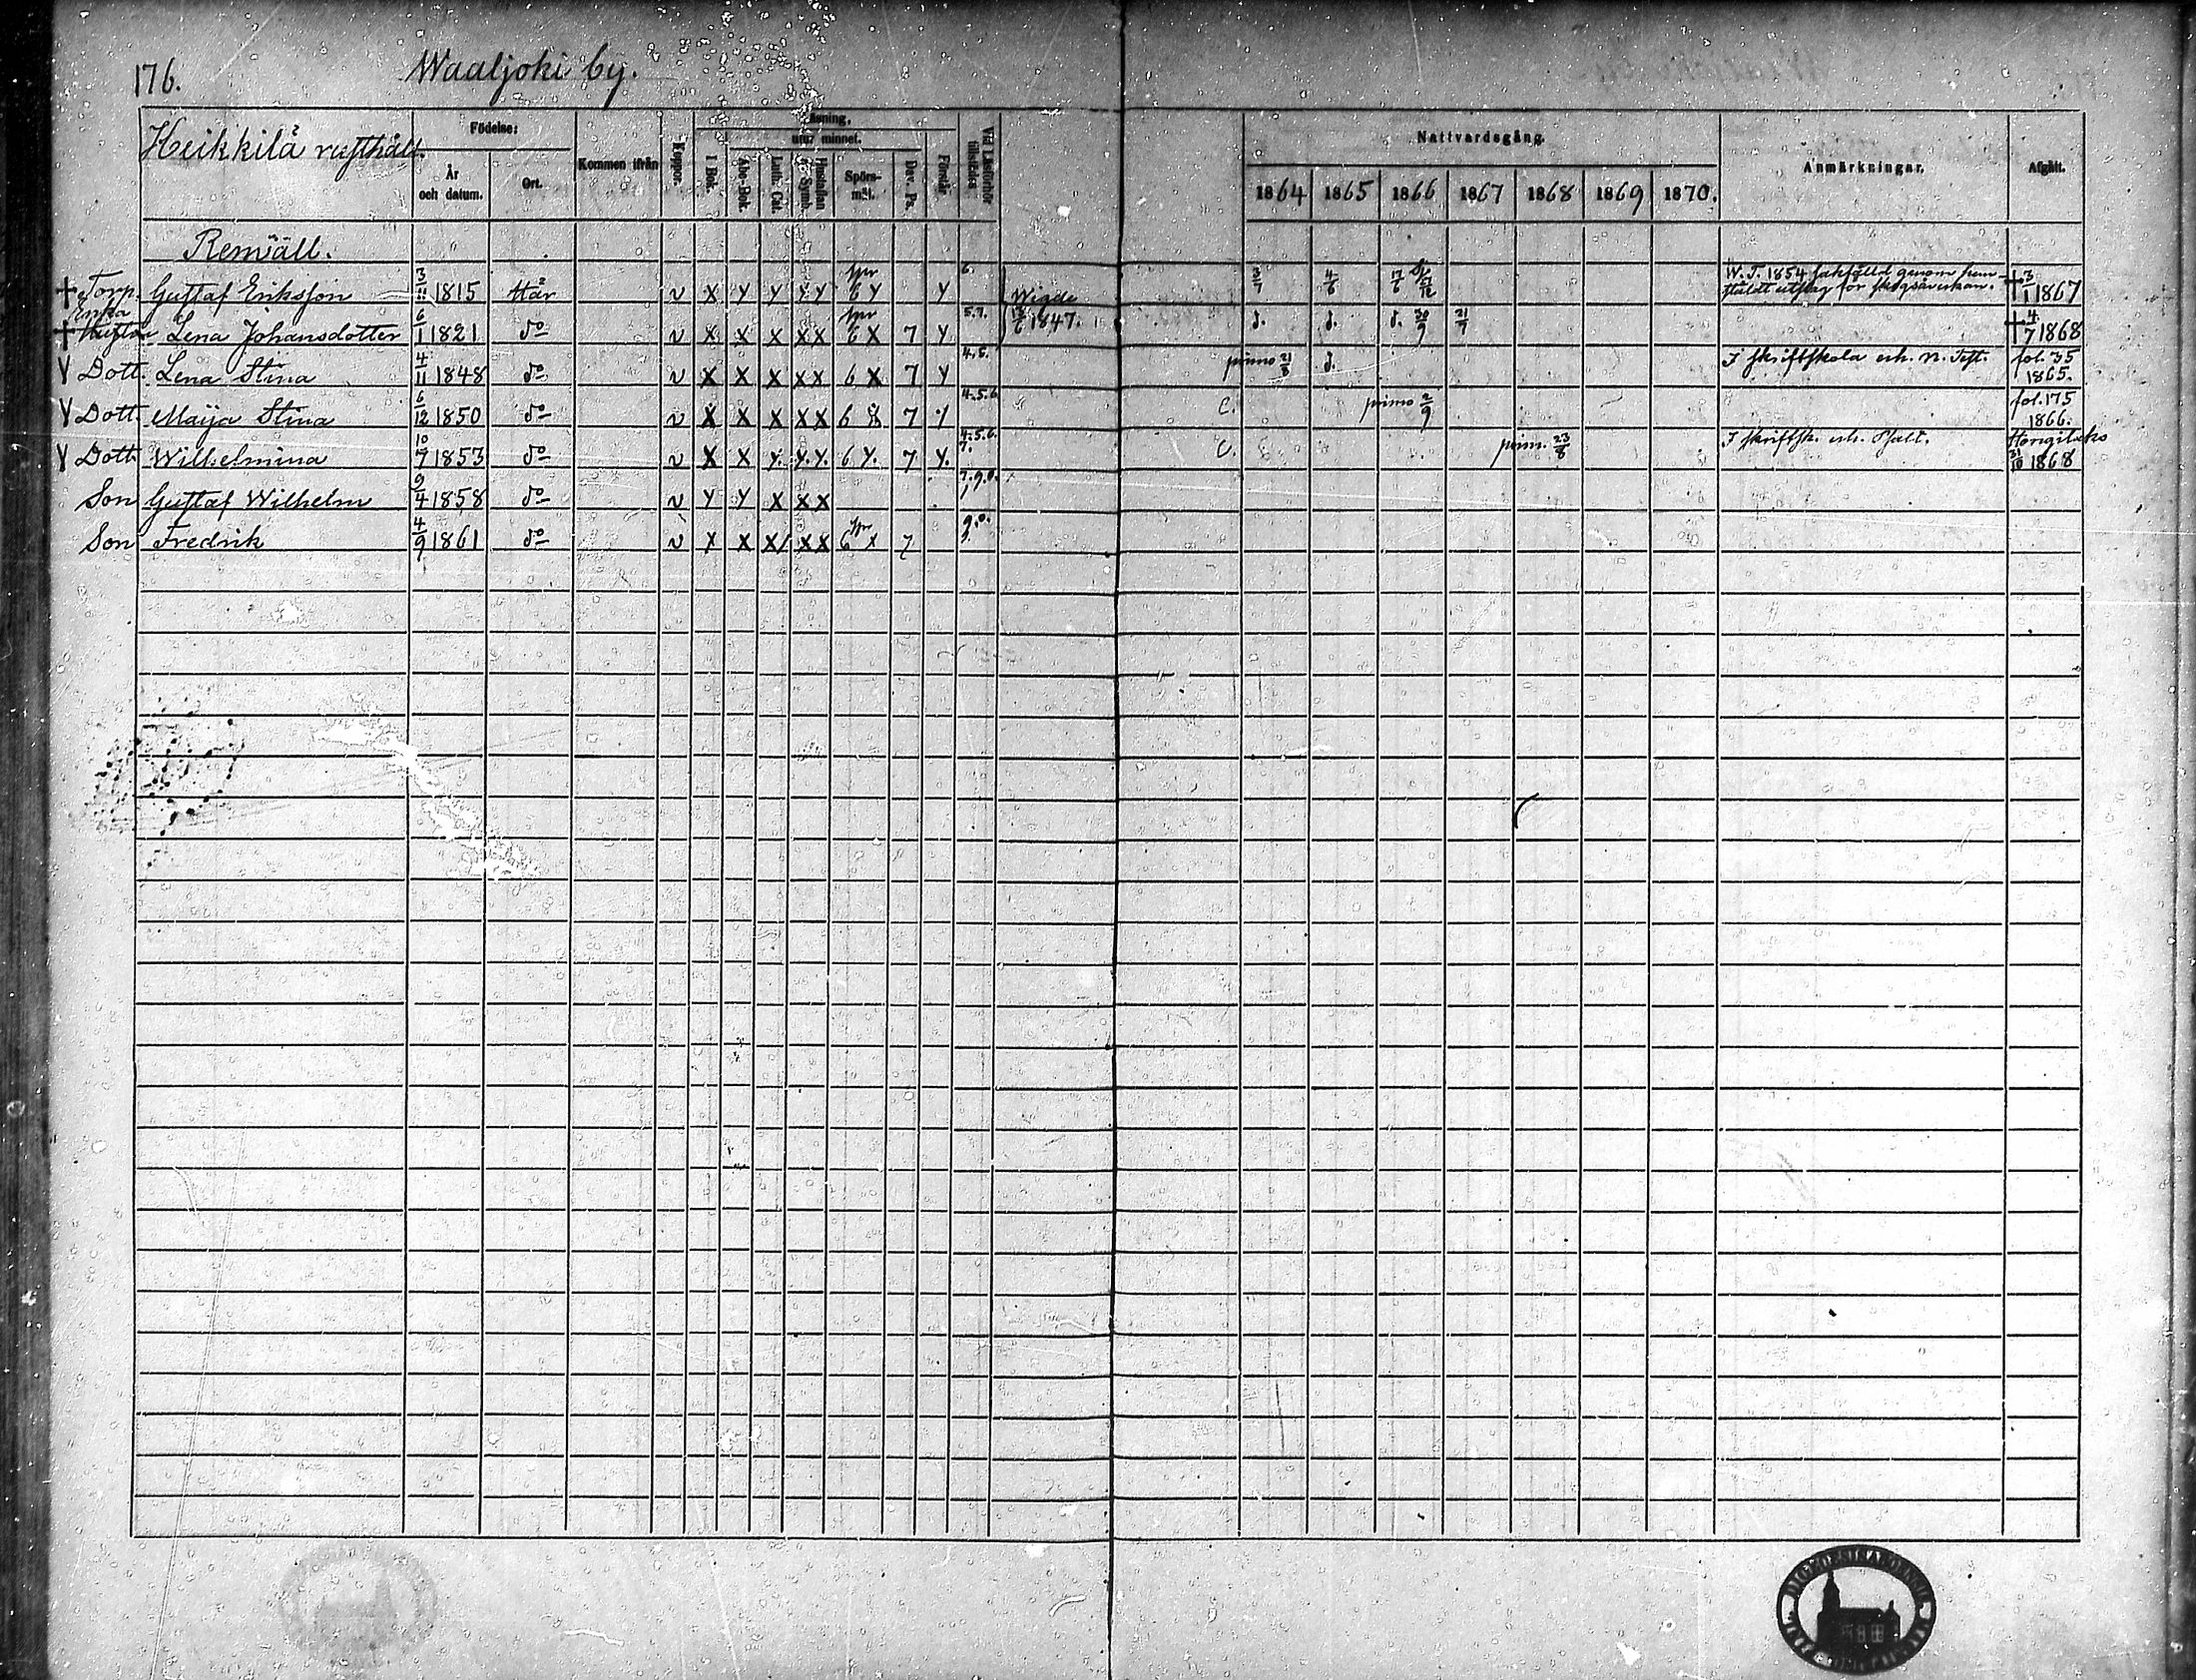 176. Waaljoki by.
Heikkilä rusthåll.
Födelse:
År och datum.
Ort.
Kommen ifrån
Koppor.
Läsning,
utur minnet.
I Bok.
Abc-Bok.
Luth. Cat.
Hustaflan Symb.
Spörs-mål.
Dav. Ps.
Förstår.
Vid Läsförhör tillstädes
Nattvardsgång.
1864 1865 1866 1867 1868 1869 1870.
Anmärkningar.
Afgått.
Remäll.
† Torp. Gustaf Eriksson 3/11 1815 Här v X Y Y Y Y spr 6 Y Y 6. Wigde 3/7 4/6 17/6 W.T. 1854 sakfälld genom hem- † 3/1 1867
ställdt utslag för skogsåverkan.
Enka
† Hustru Lena Johansdotter 6/1 1821 do v X X X X X spr 6 X 7 Y 5.7. 1847. d. d. d. 30/9 21/7 † 4/7 1868
Y Dott. Lena Stina 4/11 1848 do v X X X X X 6 X 7 Y 4.5. primo 21/8 d. I skriftskola erh. N. Test. fol. 35 1865.
Y Dott. Maija Stina 6/12 1850 do v X X X X X 6 X 7 Y 4.5.6. C. primo 2/9 fol. 175 1866.
Y Dott. Wilhelmina 10/7 1853 do v X X Y. Y. Y. 6 Y. 7 Y. 4.5.6. 7. C. prim. 23/8 I skriftsk. erh. Psalt. Hongilaks 31/10 1868
Son Gustaf Wilhelm 9/4 1858 do v Y Y X X X 7.9.0.
Son Fredrik 4/9 1861 do v X X X/ X X spr 6 X 7 9.0.